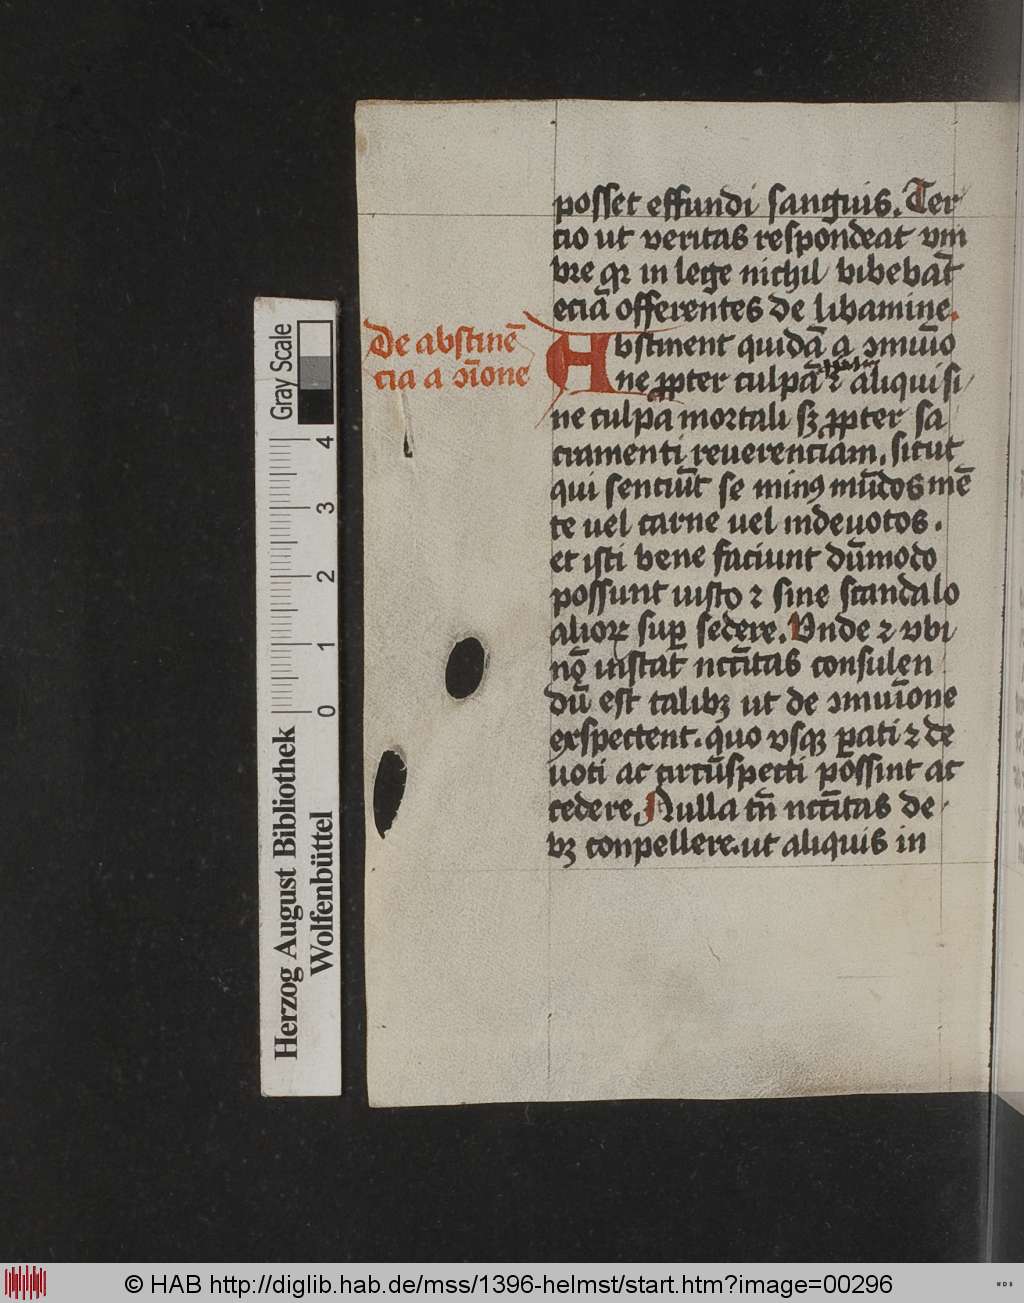 posset effundi sanguis. Ter
cio ut veritas respondeat vm
bre qꝛ in lege nichil bibebāt
eciā offerentes de libamine.
De abstinē
cia a ↄīone
Abstinent quidā a ↄmuīo
ne ꝓpter culpā ⁊ aliqui si
ne culpa mortali sꝫ ꝓpter sa
cramenti reuerenciam. sicut
qui senciūt se minꝰ mūdos mē
te uel carne uel indeuotos.
et isti bene faciunt dūmodo
possunt iusto ⁊ sine scandalo
alioꝝ suꝑ sedere. Unde ⁊ vbi
nō instat nccītas consulen
dū est talibꝫ ut de ↄmuīone
exspectent. quo vsqꝫ ꝑati ⁊ de
uoti ac circūspecti possint ac
cedere. Nulla tn̄ nccītas de
bꝫ conpellere. ut aliquis in
Gray Scale
4
3
2
1
0
Herzog August Bibliothek
Wolfenbüttel
© HAB http://diglib.hab.de/mss/1396-helmst/start.htm?image=00296